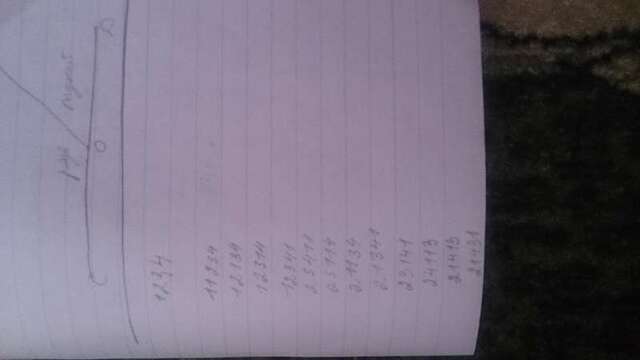 O
1234
11234
12134
12314
12341
23411
23114
21134
21341
23141
24113
21413
21431